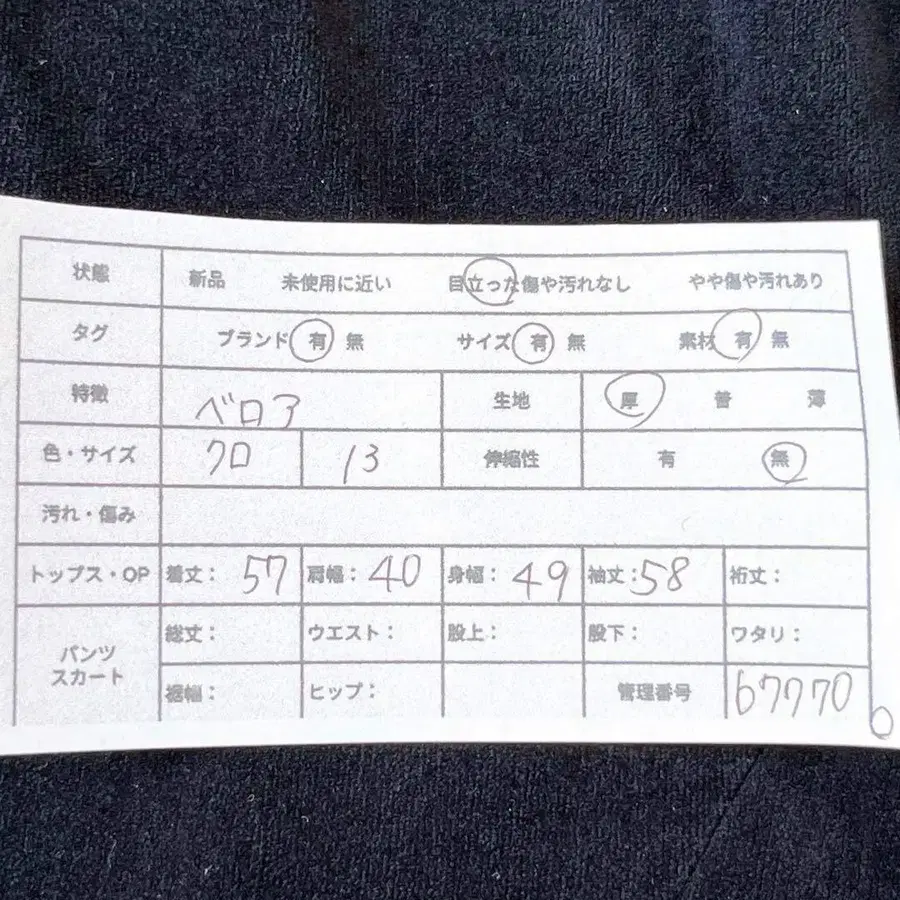 状態 新品 未使用に近い 目立った傷や汚れなし やや傷や汚れあり
タグ ブランド 有 無 サイズ 有 無 素材 有 無
特徴 ベロア 生地 厚 普 薄
色・サイズ クロ 13 伸縮性 有 無
汚れ・傷み
トップス・OP 着丈: 57 肩幅: 40 身幅: 49 袖丈: 58 裄丈:
パンツ スカート
総丈: ウエスト: 股上: 股下: ワタリ:
裾幅: ヒップ: 管理番号 67770